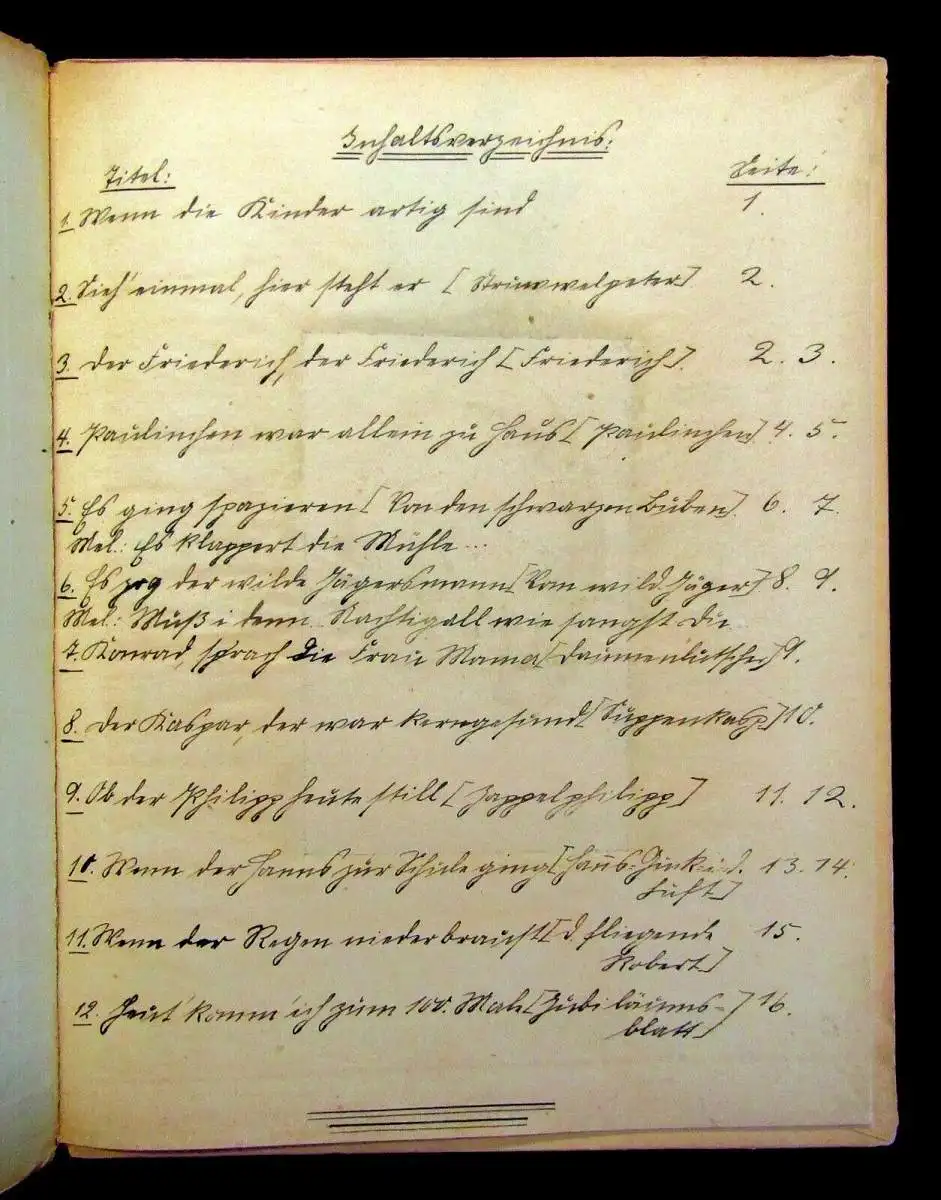 Inhaltsverzeichnis:
Titel: Seite:
1. Wenn die Kinder artig sind 1.
2. Sieh' einmal, hier steht er [Struwwelpeter] 2.
3. Der Friederich, der Friederich [Friederich]. 2. 3.
4. Paulinchen war allein zu Haus [Paulinchen]. 4. 5.
5. Es ging spazieren [Von den schwarzen Buben]. 6. 7.
Mel.: Es klappert die Mühle...
6. Es zog der wilde Jägersmann [Vom wild Jäger] 8. 9.
Mel: Muß i denn. Nachtigall wie sangst Du
7. Konrad, sprach die Frau Mama [Daumenlutscher] 9.
8. Der Kaspar, der war kerngesund [Suppenkasp.] 10.
9. Ob der Philipp heute still [Zappelphilipp] 11. 12.
10. Wenn der Hanns zur Schule ging [Hans-Guck-i.d. 13. 14.
Luft]
11. Wenn der Regen niederbraust [d. fliegende 15.
Robert]
12. Heut' komm' ich zum 100. Male [Jubiläums- 16.
blatt]